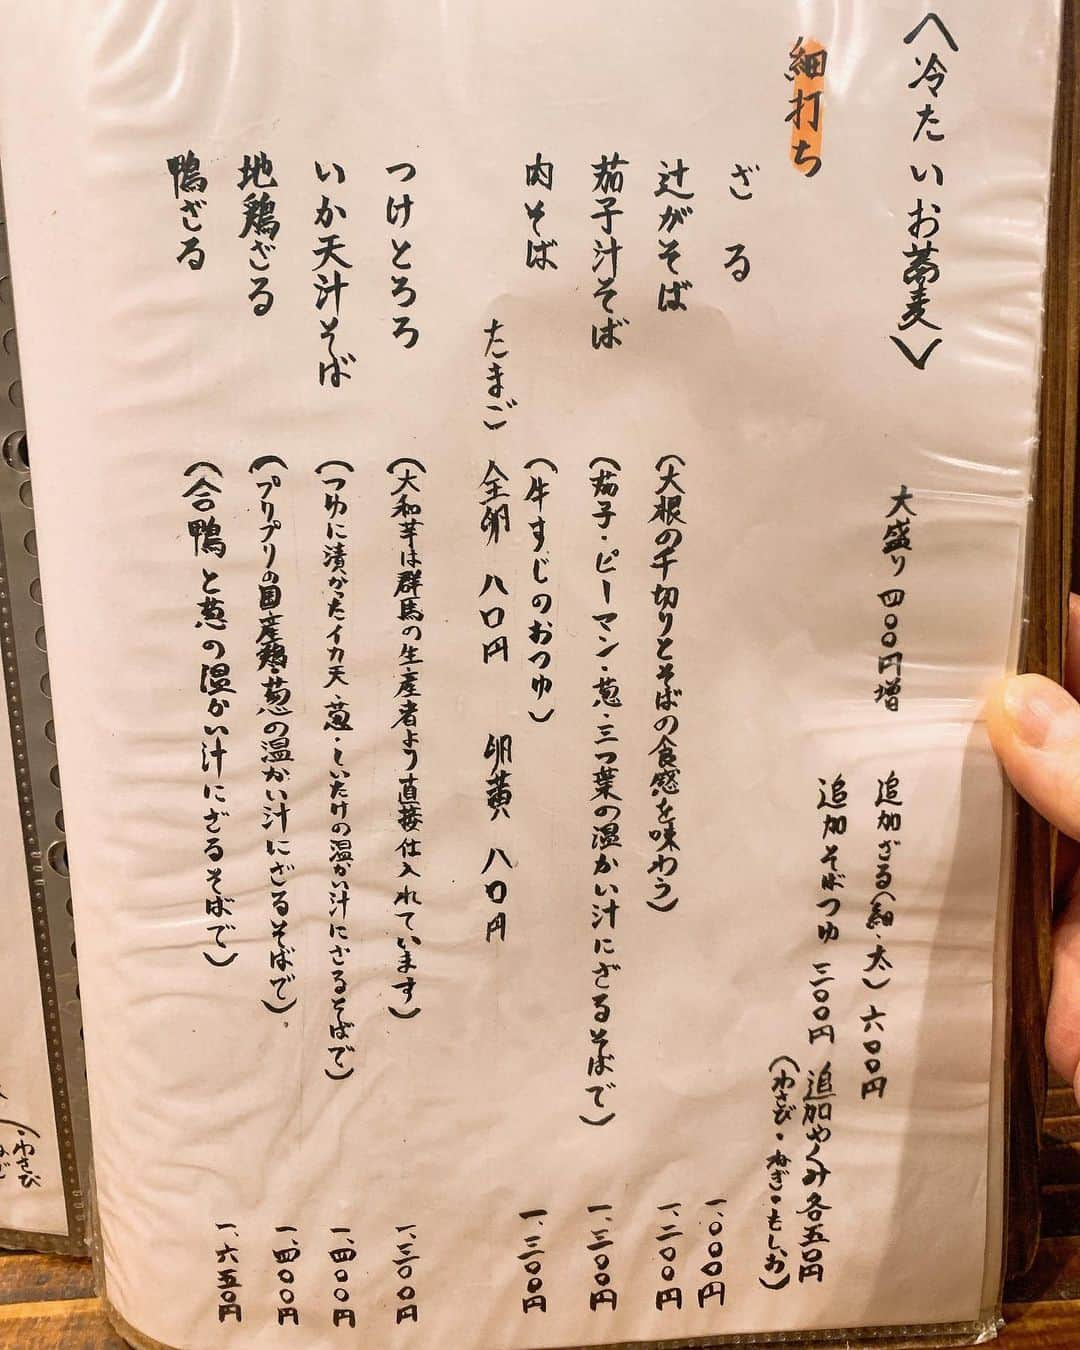 〈冷たいお蕎麦〉
大盛り 四〇〇円増
追加ざる(細・太) 六〇〇円
追加そばつゆ 三〇〇円
追加やくみ各五〇円
(わさび・ねぎ・もしお)
細打ち
ざる 一、〇〇〇円
辻がそば (大根の千切りとそばの食感を味わう) 一、二〇〇円
茄子汁そば (茄子・ピーマン・葱・三つ葉の温かい汁にざるそばで) 一、三〇〇円
肉そば (牛すじのおつゆ) 一、三〇〇円
たまご 全卵 八〇円 卵黄 八〇円
つけとろろ (大和芋は群馬の生産者より直接仕入れています) 一、三〇〇円
いか天汁そば (つゆに漬かったイカ天・葱・しいたけの温かい汁にざるそばで) 一、四〇〇円
地鶏ざる (プリプリの国産鶏・葱の温かい汁にざるそばで)。 一、四〇〇円
鴨ざる (合鴨と葱の温かい汁にざるそばで) 一、六五〇円
(・わさび